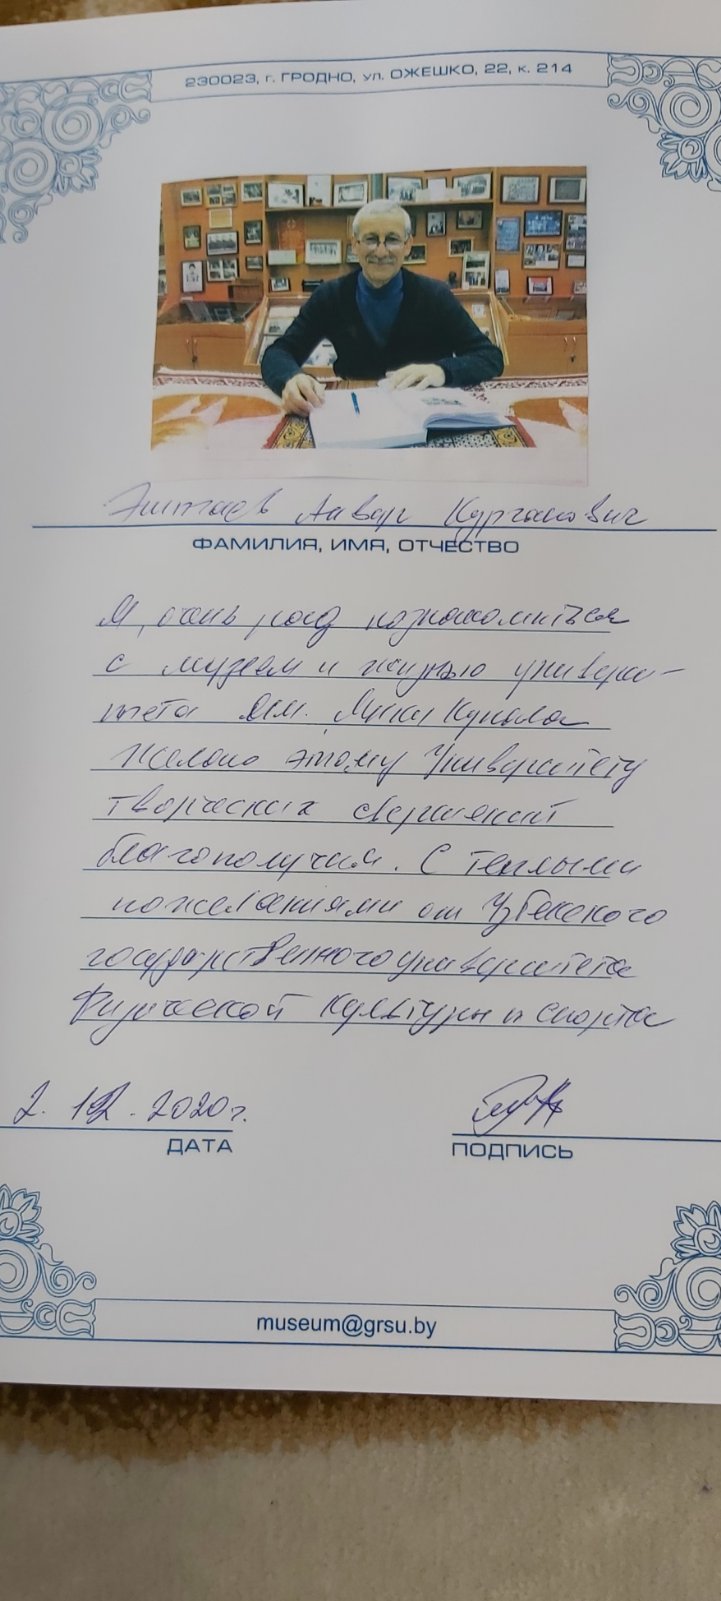 230023, г. ГРОДНО, ул. ОЖЕШКО, 22, к. 214
Эштаев Анвар Курганович
ФАМИЛИЯ, ИМЯ, ОТЧЕСТВО
Я, очень рад познакомиться
с музеем и жизнью универси-
тета им. Янки Купала
Желаю этому Университету
творческих свершений
благополучия. С теплыми
пожеланиями от Узбекского
государственного университета
Физической культуры и спорта
2. 12. 2020г.
ДАТА
ПОДПИСЬ
museum@grsu.by